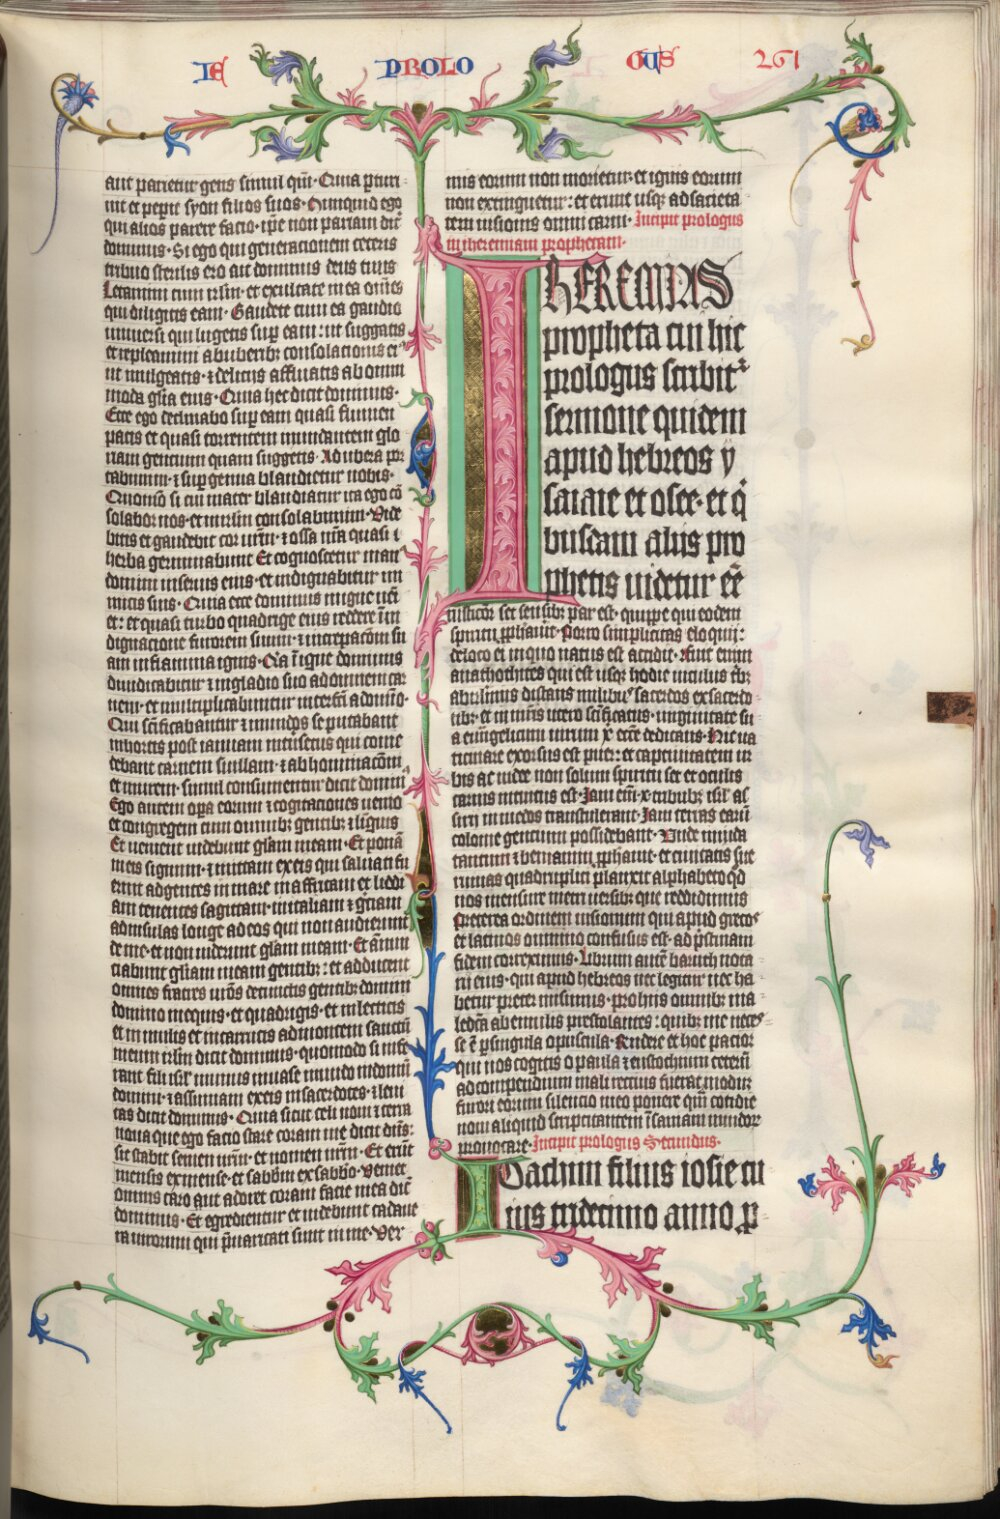 IE PROLO GUS 261
aut parietur gens simul quī · Quia ꝑturi
uit et peperit syon filios suos · Numquid ego
qui alios parere facio · ipse non pariam dic̄
dominus · Si ego qui generationem ceteris
tribuo sterilis ero ait dominus deus tuus
Letamini cum irl̄m · et exultate in ea om̄es
qui diligitis eam · Gaudete cum ea gaudio
uniuersi qui lugetis suꝑ eam : ut suggatis
et repleamini ab uberibꝫ consolationis eiꝰ
ut mulgeatis · ⁊ delitijs affluatis ab omni
moda gl̄ia eius · Quia hec dicit dominus ·
Ecce ego declinabo suꝑ eam quasi flumen
pacis et quasi torrentem inundantem glo
riam gentium quam suggetis · Ad ubera por
tabimini · ⁊ suꝑ genua blandietur nobis ·
Quōmō si cui mater blandiatur ita ego cō
solabor uos · et in irl̄m consolabimini · Vide
bitis et gaudebit cor ur̄m · ⁊ ossa ur̄a quasi
herba germinabunt Et cognoscetur man
domini in seruis eius · et indignabitur ini
micis suis · Quia ecce dominus in igne ueī
et : et quasi turbo quadrige eius reddere ī in
dignatione furorem suum · ⁊ increpacōm su
am in flamma ignis · Q̄a ī igne dominus
diiudicabitur ⁊ in gladio suo ad omnem car
nem · et multiplicabuntur interfc̄i a domīo ·
Qui scīficabantur ⁊ mundos se putabant
in hortis post ianuam intrisecus qui come
debant carnem suillam · ⁊ abhominacōm
et murem · simul consumentur dicit dominꝰ
Ego autem oꝑa eorum ⁊ cogitaciones uenio
ut congregem cum omnibꝫ gentibꝫ ⁊ līguis
Et uenient ⁊ uidebunt gl̄iam meam · Et ponā
in eis signum · ⁊ mittam ex eis qui saluati fu
erint ad gentes in mare in affricam et liddi
am tenentes sagittam · in italiam ⁊ greciam
ad insulas longe ad eos qui non audierunt
de me · et non uiderunt gl̄iam meam · Et ānun
ciabunt gl̄iam meam gentibꝫ : et adducent
omnes fratres uīos de cunctis gentibꝫ donum
domino in equis · et quadrigis · et in lecticis
et in mulis et in carrucis ad montem sanctū
meum irl̄m dicit dominus · quomodo si infe
rant filij isrl̄ munus in uase mundo in domū
domini · ⁊ assumam ex eis in sacerdotes · ⁊ leui
tas dicit dominus · Quia sicut celi noui ⁊ terra
noua que ego facio stare coram me dicit dn̄s :
sic stabit semen ur̄m · et nomen ur̄m · Et erit
mensis ex mense · et sabbm̄ ex sabbo · Veniet
omnis caro aut adoret coram facie mea dic̄
dominus · Et egredientur et uidebunt cadaue
ra uirorum qui p̄uaricati sunt in me · Ver
mis eorum non morietur · et ignis eorum
non extinguetur : et erunt usqꝫ ad sacieta
tem uisionis omni carni · Incipit prologus
in iheremiam prophetam ·
IHEREMIAS
propheta cui hic
prologus scribit̄
sermone quidem
apud hebreos y
saiaie et osee · et q̇
busdam alijs pro
phetis uidetur eē
rusticor̄ set sensibꝫ par est · quippe qui eodem
spiritu ꝓphauit · Porro simplicitas eloquij :
de loco ei in quo natus est accidit · Fuit enim
anathothites qui est usqꝫ hodie uiculus tribꝫ
ab irl̄imis distans milibus sacerdos ex sacerdo
tibꝫ · et in mr̄is utero scīficatus · uirginitate su
a euangelicum uirum x̄ ecc̄e dedicans · Hic ua
ticinare exorsus est puer · et captiuitatem ur
bis ac iudee non solum spiritu set et oculis
carnis intuitus est · Iam em̄ · x · tribubꝫ isrl̄ as
sirij in medos transtulerant · Iam terras earū
colonie gentium possidebant · Unde in iuda
tantum ⁊ beniamin ꝓphauit · et ciuitatis sue
ruinas quadruplici planxit alphabeto q̄d
nos mensure metri uersibꝫ que reddidimus
Preterea ordinem uisionum qui apud grecos
et latinos omnino confusus est · ad pristinam
fidem correximus · Librum autē baruch nota
rij eius · qui apud hebreos nec legitur nec ha
betur preter misimus · pro hijs omnibꝫ ma
ledc̄a ab emulis prestolantes : quibꝫ me neces
se ē ꝑ singula opuscula · Rndere et hoc pacior
qui uos cogitis o paula ⁊ eustochium ceterū
ad compendium mali rectius fuerat modum
furori eorum silencio meo ponere qm̄ cotidie
noui aliquid scriptitantem ī saniam inuidor
prouocare · Incipit prologus Secundus ·
Ioachim filius iosie cu
ius tridecimo anno ꝓ